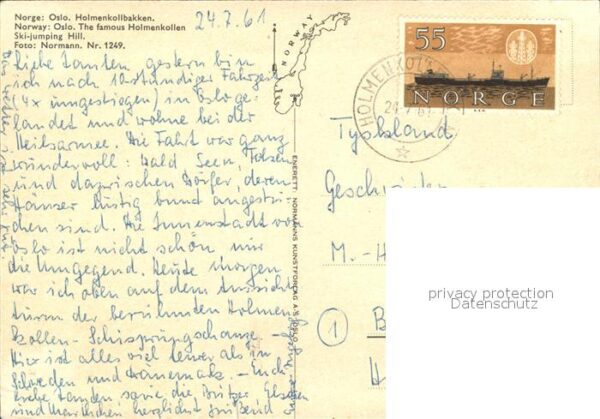 Norge: Oslo. Holmenkollbakken.
Norway: Oslo. The famous Holmenkollen
Ski-jumping Hill.
Foto: Normann. Nr. 1249.
24.7.61
NORWAY
Liebe Tanten gestern bin
ich nach 10stündiger Fahrzeit
(4x umgestiegen) in Oslo ge-
landet und wohne bei der
Heilsarmee. Die Fahrt war ganz
wundervoll: Wald Seen, Felsen
und dazwischen Dörfer, deren
Häuser lustig bunt angestri-
chen sind. Die Innenstadt von
Oslo ist nicht schön nur
die Umgegend. Heute Morgen
war ich oben auf dem Aussichts
turm der berühmten Holmen
kollen - Schisprungschanze. -
Hier ist alles viel teurer als in
Schweden und Dänemark. - Euch
liebe Tanten sowie die
herzlichst grüßend
ENERETT: NORMANNS KUNSTFORLAG A/S, OSLO
55
NORGE
HOLMENKOL
24.7.61
Tyskland
Geschwister
M.-H
1 B
H
privacy protection
Datenschutz